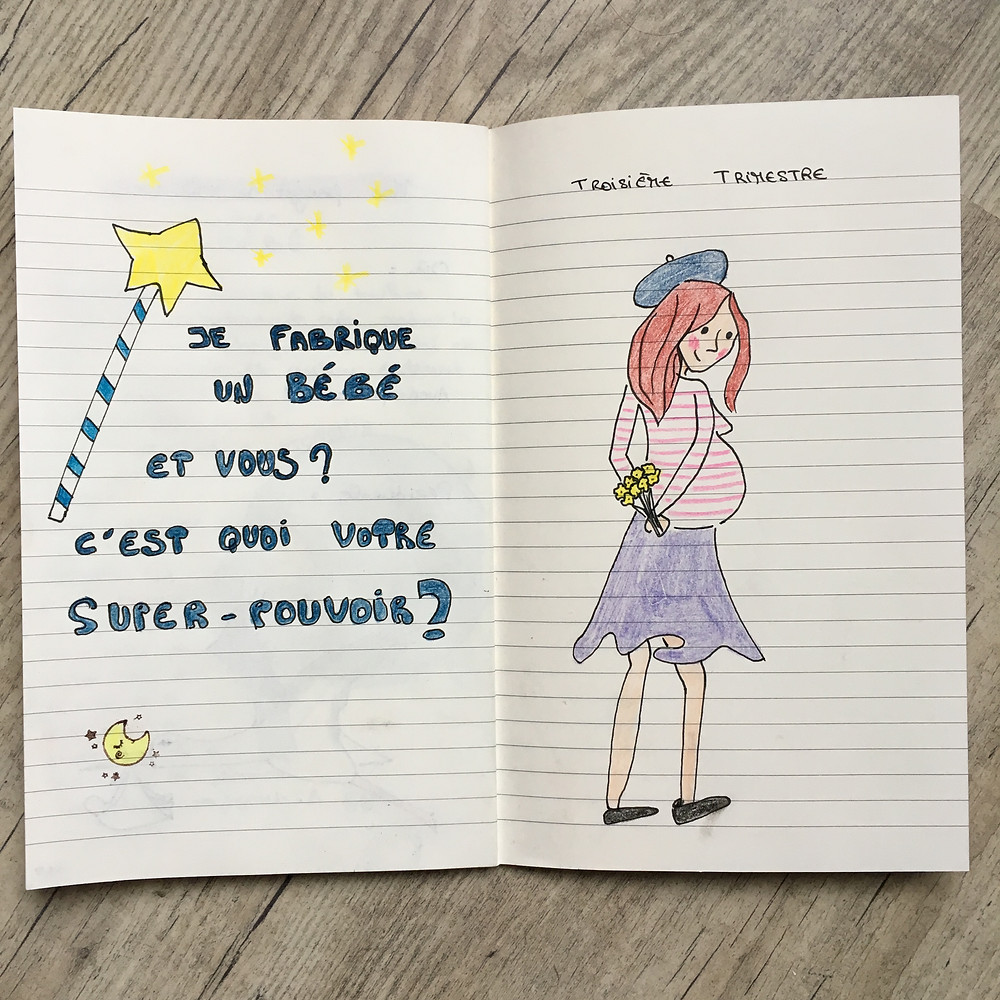 JE FABRIQUE
UN BÉBÉ
ET VOUS ?
C'EST QUOI VOTRE
SUPER-POUVOIR ?
TROISIÈME TRIMESTRE